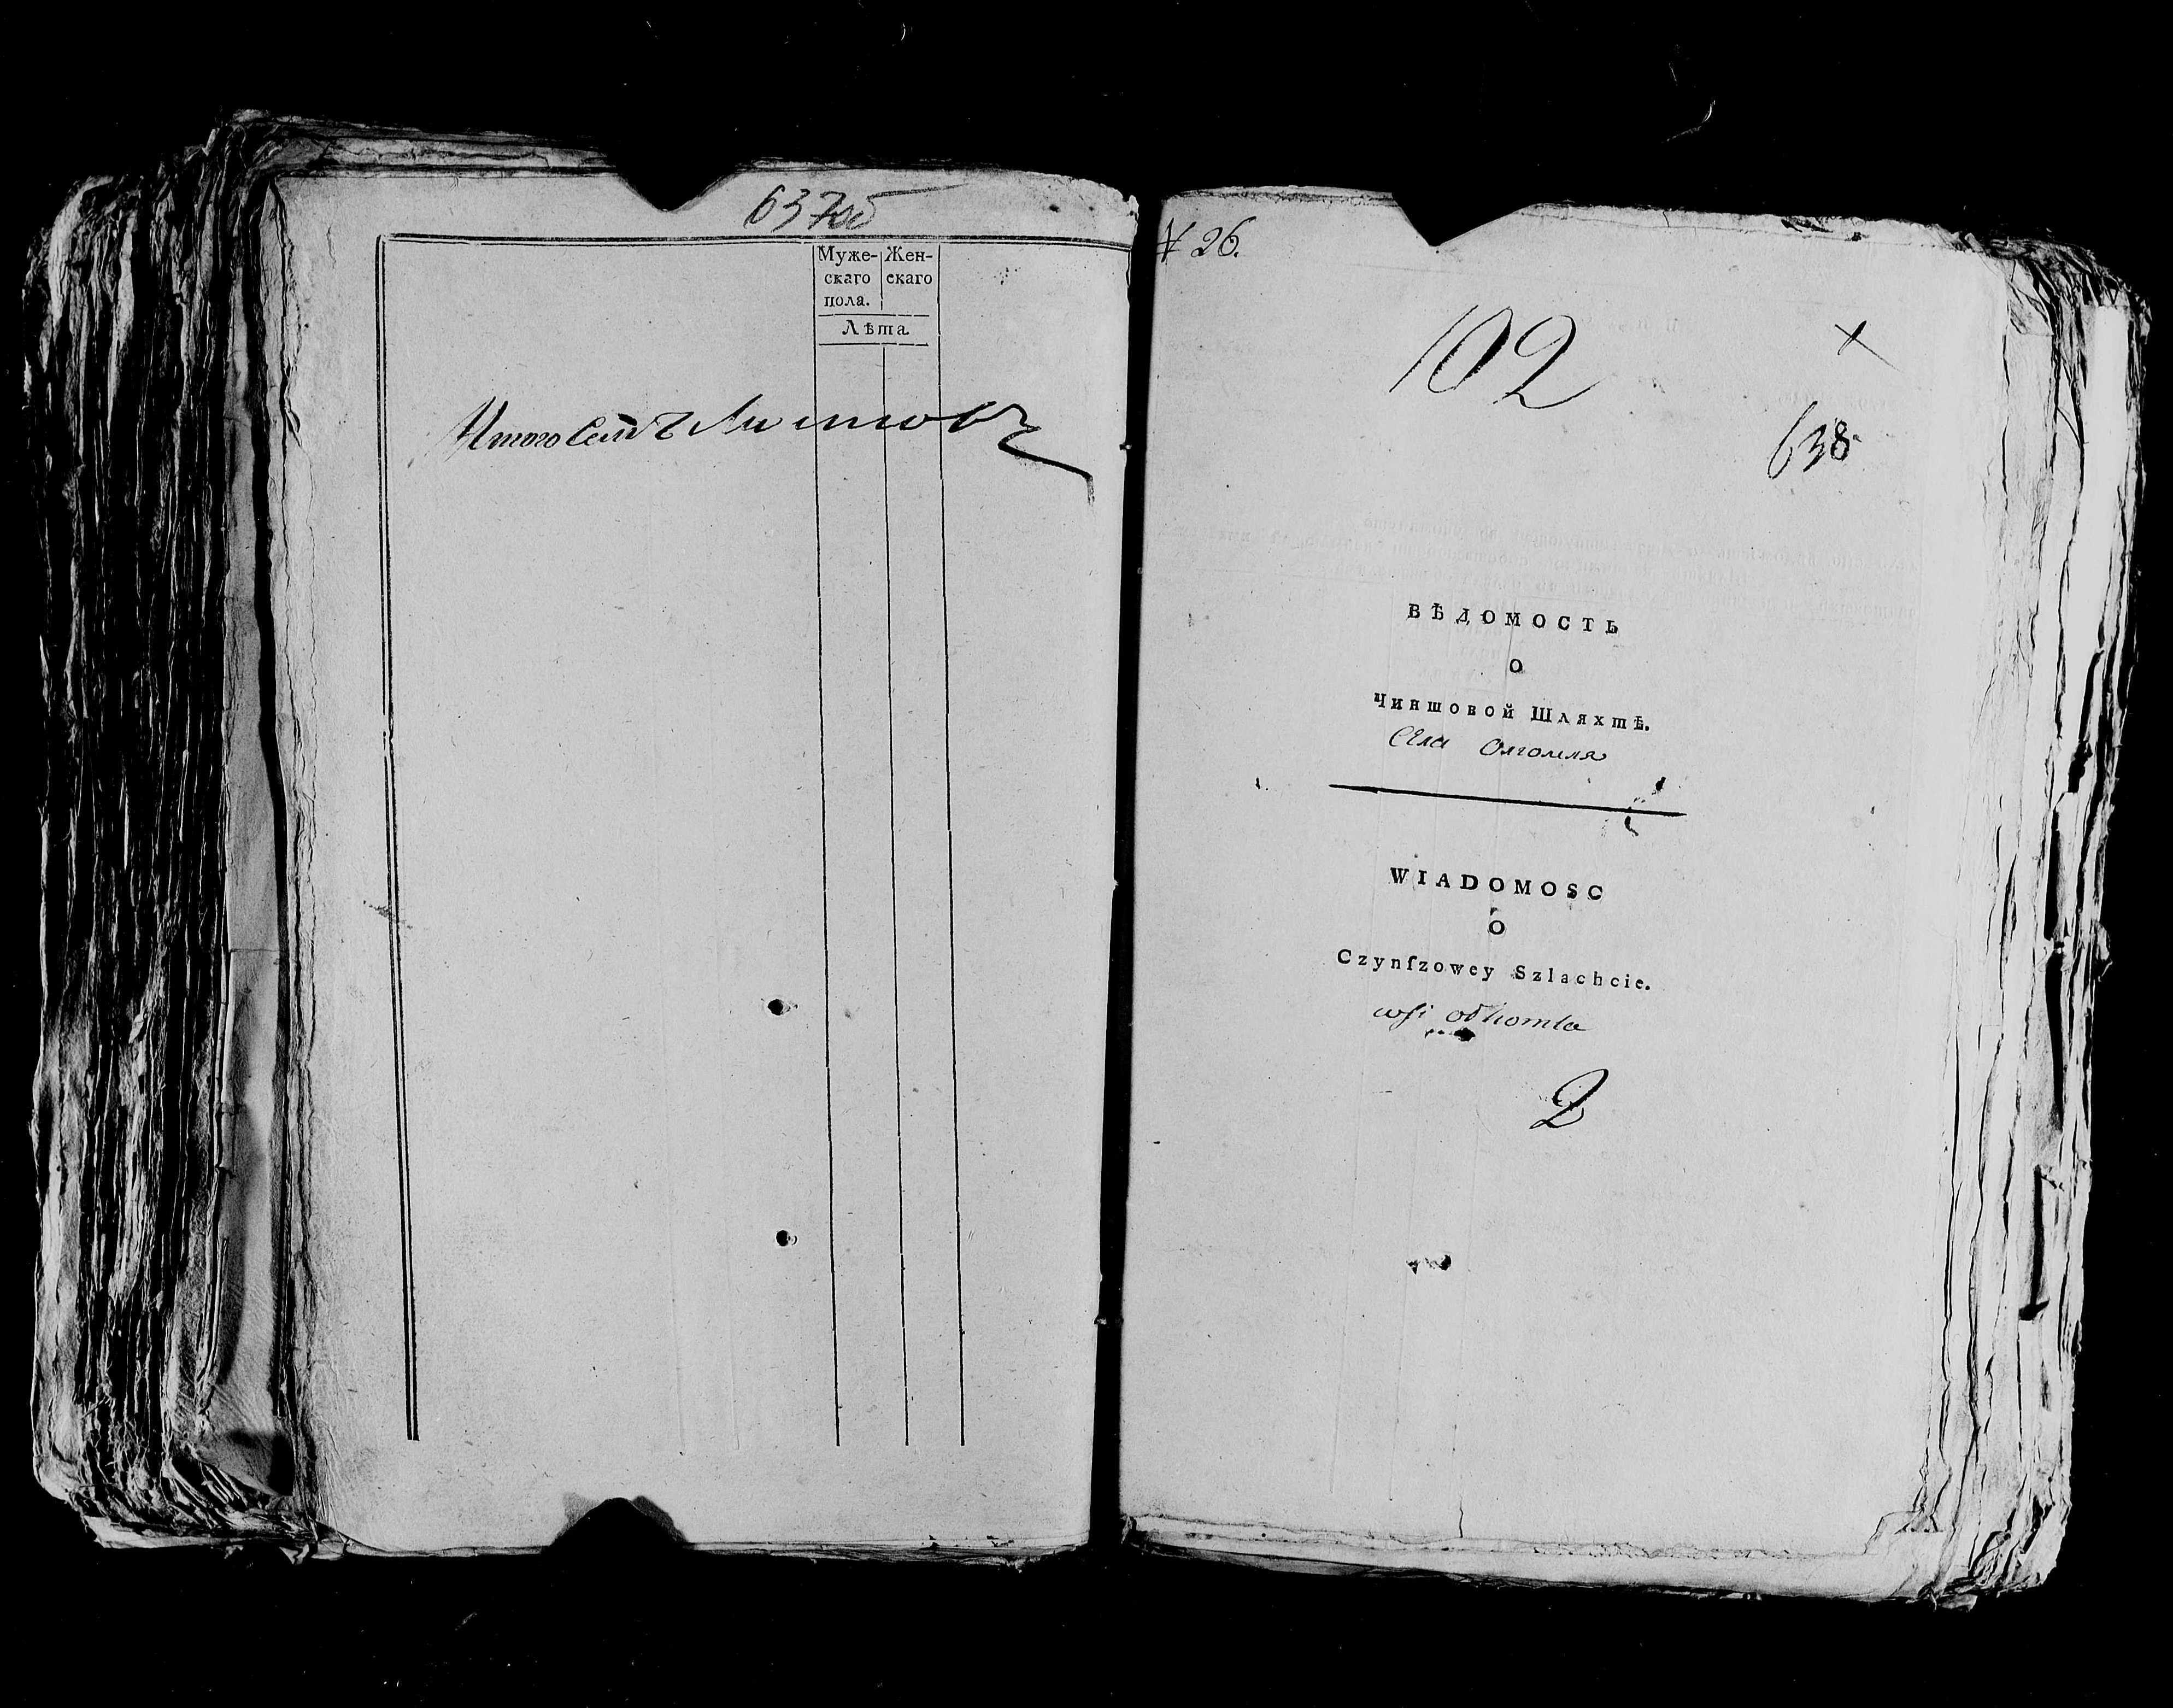 637об
Муже- Жен-
скаго скаго
пола.
Лѣта
Итого Семь Листовъ
№ 26.
102
638
ВѢДОМОСТЬ
О
Чиншовой Шляхтѣ.
Села Олгомля
WIADOMOSC
O
Czynſzowey Szlachcie.
wſi olhomla
2